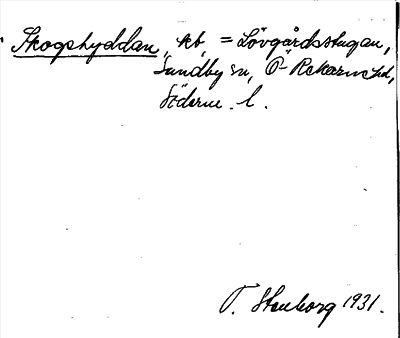 Skogshyddan, kb, = Lövgårdsstugan,
Sundby sn, Ö-Rekarne hd,
Söderm. l.
T. Stenborg 1931.